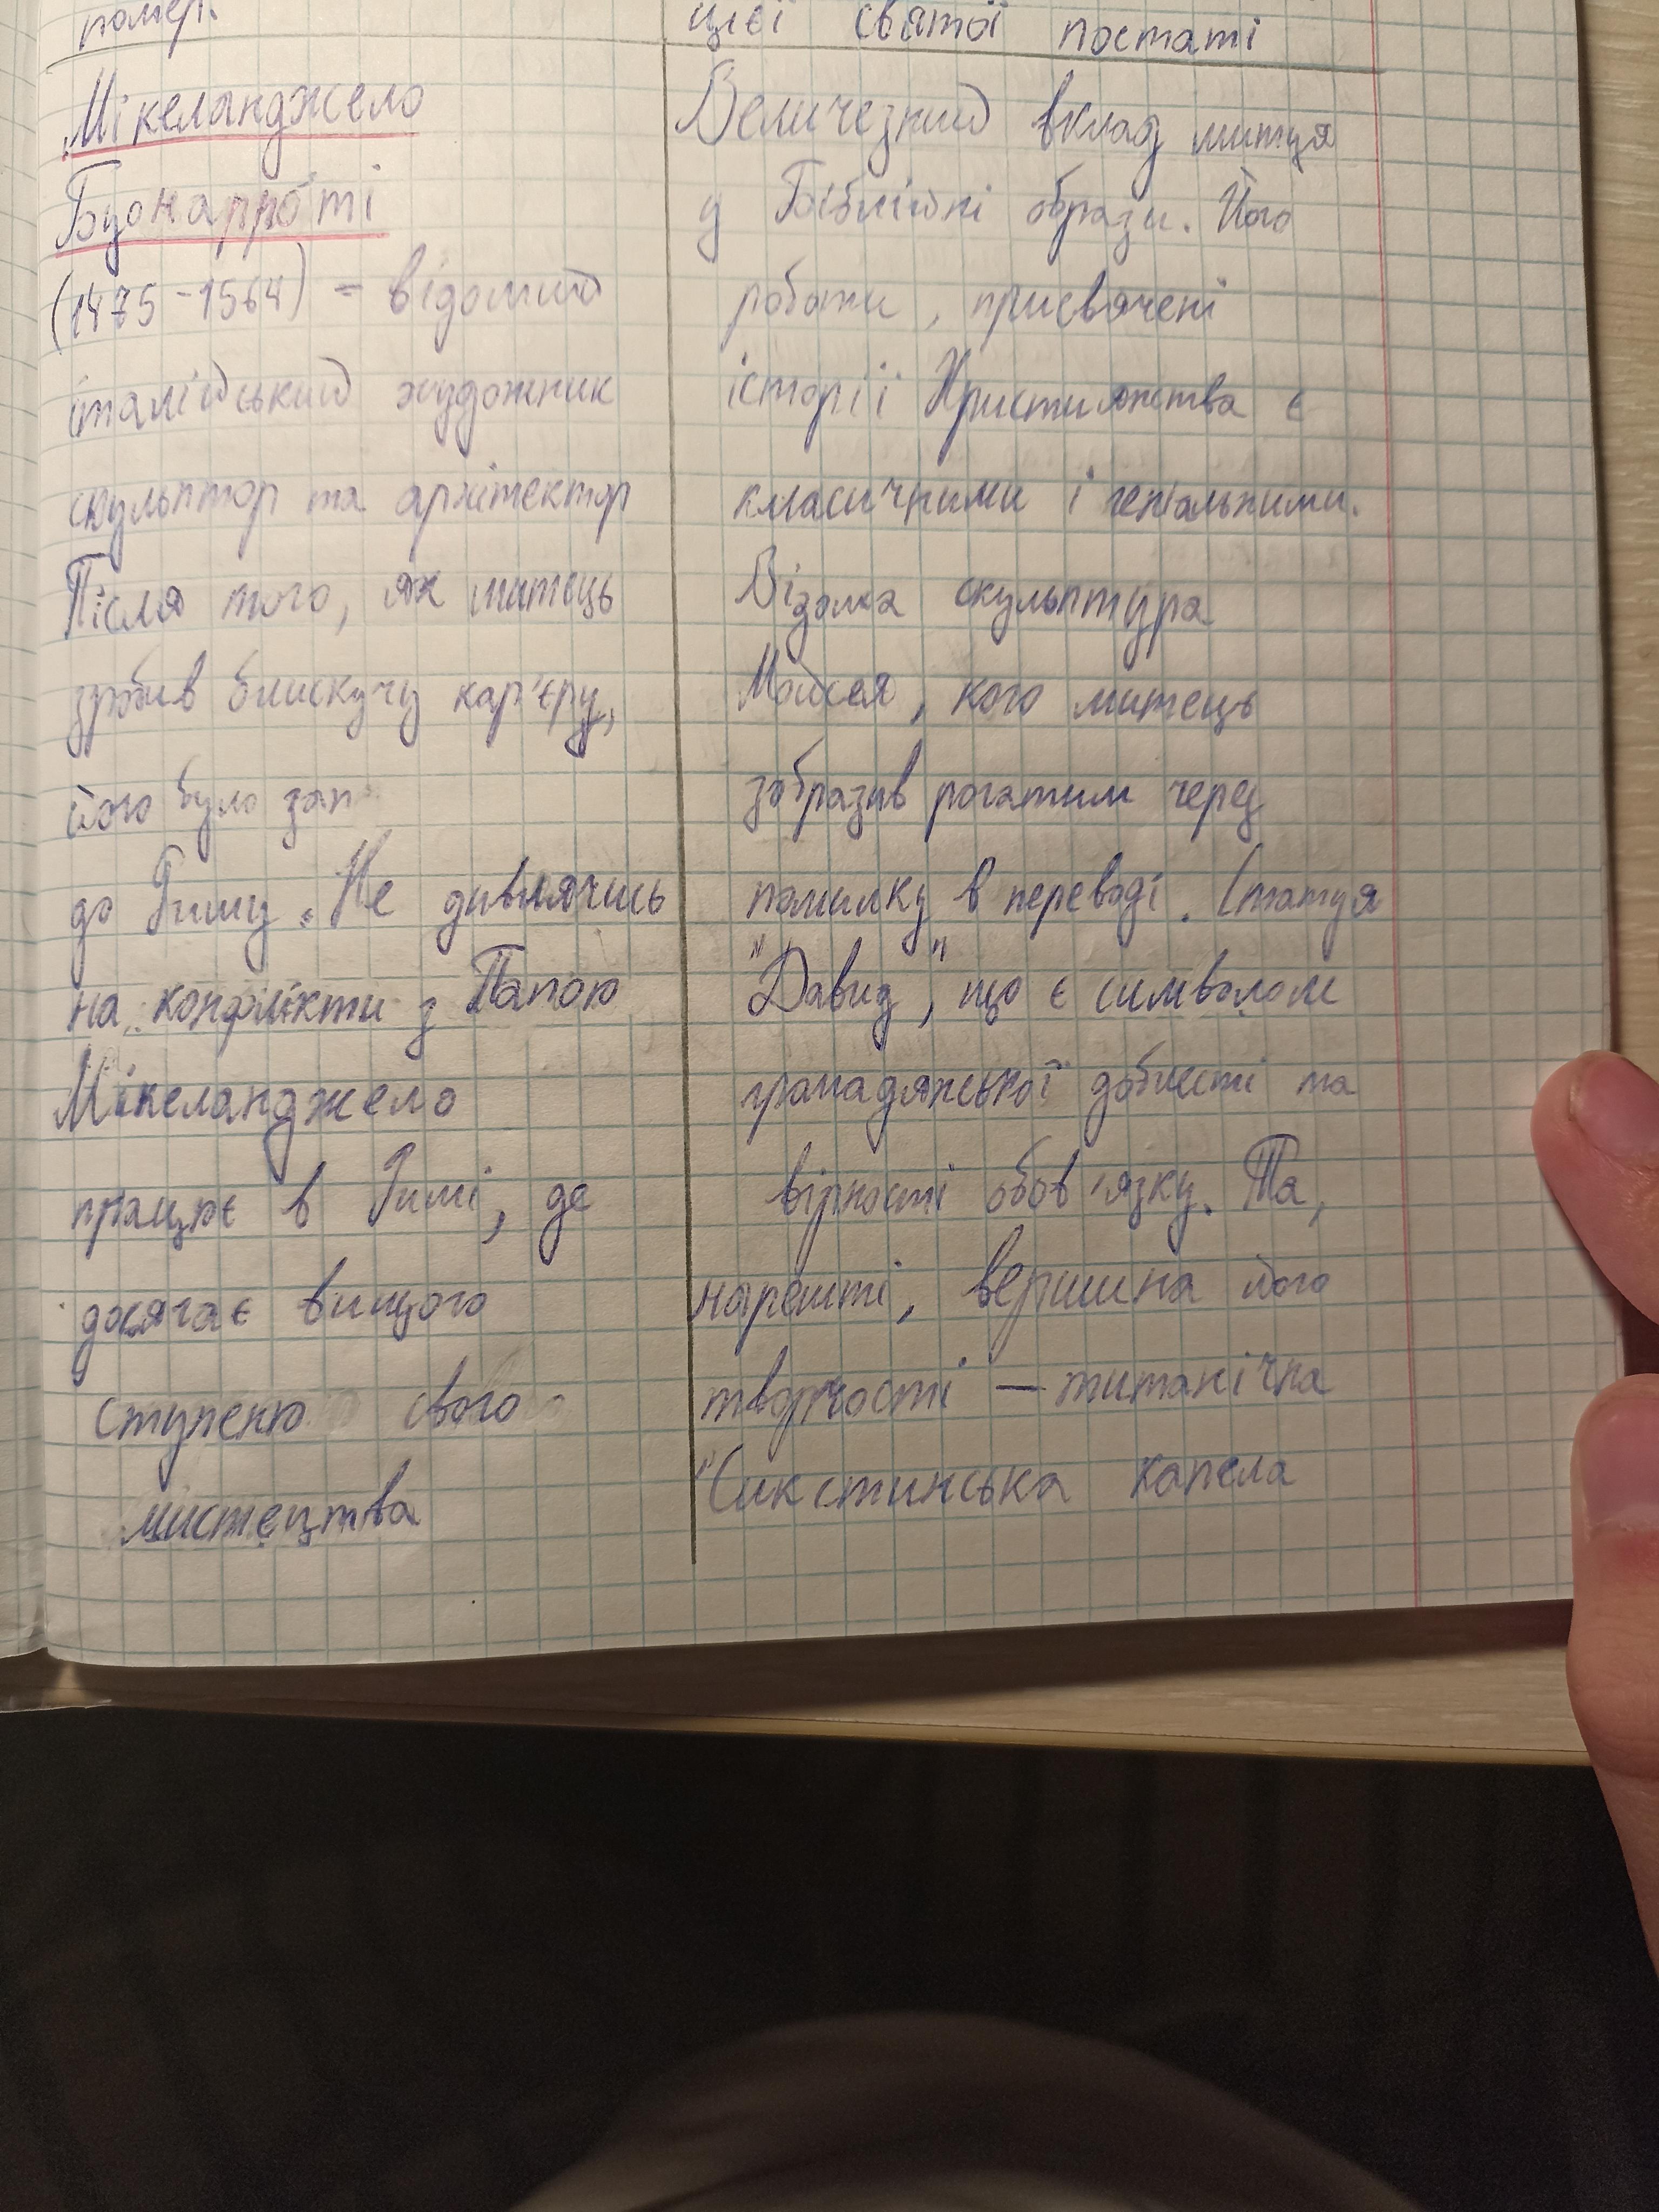 помер.
Мікеланджело
Буонарроті
(1475-1564) - відомий
італійський художник
скульптор та архітектор
Після того, як митець
зробив блискучу кар'єру,
його було зап
до Риму. Не дивлячись
на конфлікти з Папою
Мікеланджело
працює в Римі, де
досягає вищого
ступеню свого
мистецтва
цієї святої постаті
Величезний вклад митця
у Біблійні образи. Його
роботи, присвячені
історії Християнства є
класичними і геніальними.
Відома скульптура
Мойсея, кого митець
зобразив рогатим черед
помилку в переводі. Статуя
"Давид", що є символом
громадянської доблесті та
вірності обов'язку. Та,
нарешті, вершина його
творчості — титанічна
"Сикстинська капела